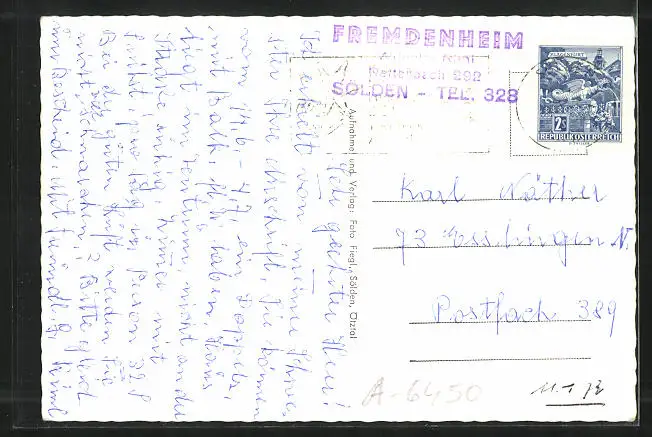 FREMDENHEIM
Rettenbach 292
SÖLDEN - TEL. 328
KLAGENFURT
2S
REPUBLIK ÖSTERREICH
Karl Näther
73 Esslingen N.
Postfach 389
A-6450
11.1.72
Aufnahme und Verlag: Foto Fiegl, Sölden, Ötztal
Sehr geehrter Herr!
Ich erhielt von meiner Schwes
ter Ihre Anschrift, Sie können
vom 14.6 - 4.7 ein Doppelz.
mit Balk. Fl.W. haben, Haus
liegt im Zentrum, nicht an der
Straße, ruhig, Zimmer mit
Frühst. pro Tag u. Person 32 S
Bei der guten Luft werden Sie
nicht schnarchen? Bitte gleich
um Bescheid. Mit freundl. G.